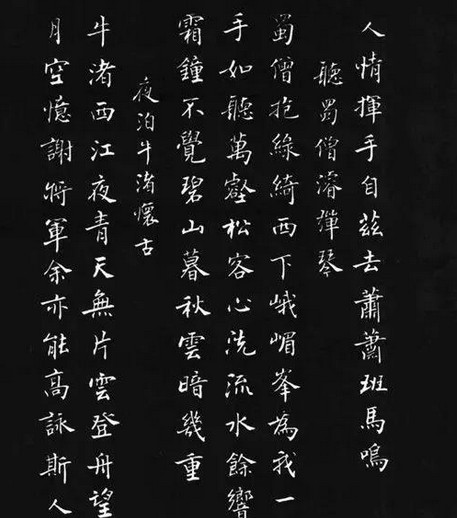 人情揮手自茲去蕭蕭班馬鳴
聽蜀僧濬彈琴
蜀僧抱綠綺西下峨嵋峯為我一
手如聽萬壑松客心洗流水餘響
霜鐘不覺碧山暮秋雲暗幾重
夜泊牛渚懷古
牛渚西江夜青天無片雲登舟望
月空憶謝將軍余亦能高詠斯人